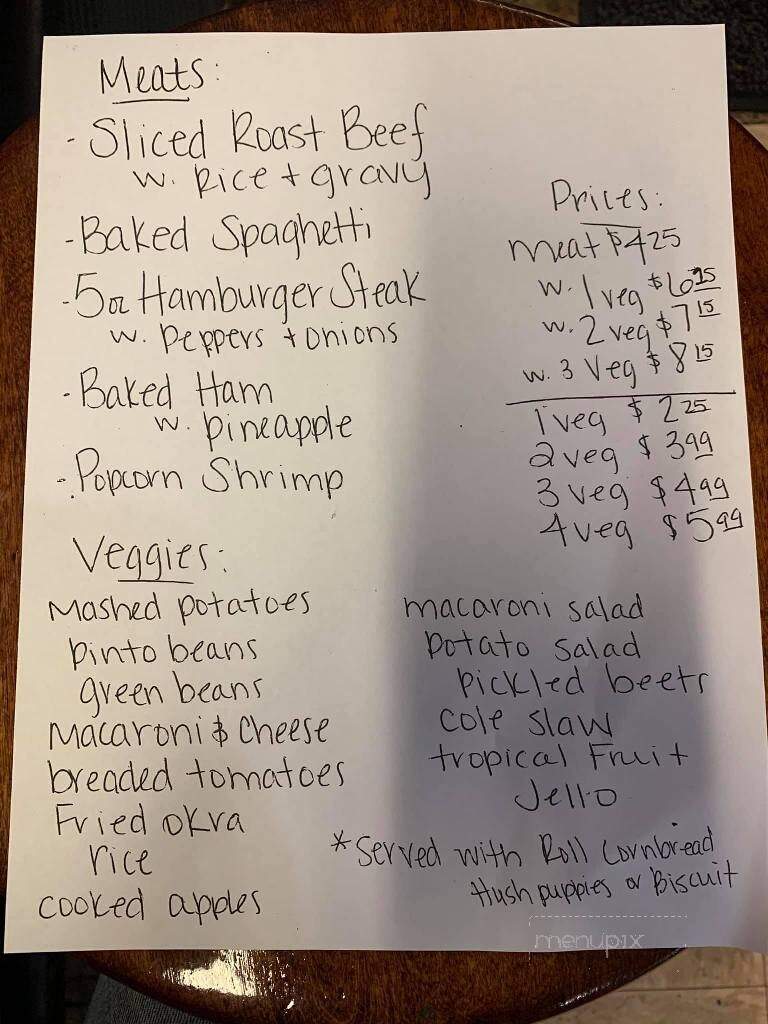 Meats:
- Sliced Roast Beef
w. Rice + gravy
- Baked Spaghetti
- 5oz Hamburger Steak
w. Peppers + onions
- Baked Ham
w. pineapple
- Popcorn Shrimp
Prices:
meat $4.25
w. 1 veg $6.15
w. 2 veg $7.15
w. 3 Veg $8.15
1 veg $2.25
2 veg $3.99
3 veg $4.99
4 veg $5.99
Veggies:
Mashed potatoes
pinto beans
green beans
Macaroni & Cheese
breaded tomatoes
Fried okra
rice
cooked apples
macaroni salad
potato salad
pickled beets
cole slaw
tropical Fruit
Jello
*Served with Roll Cornbread
Hushpuppies or Biscuit
menupix